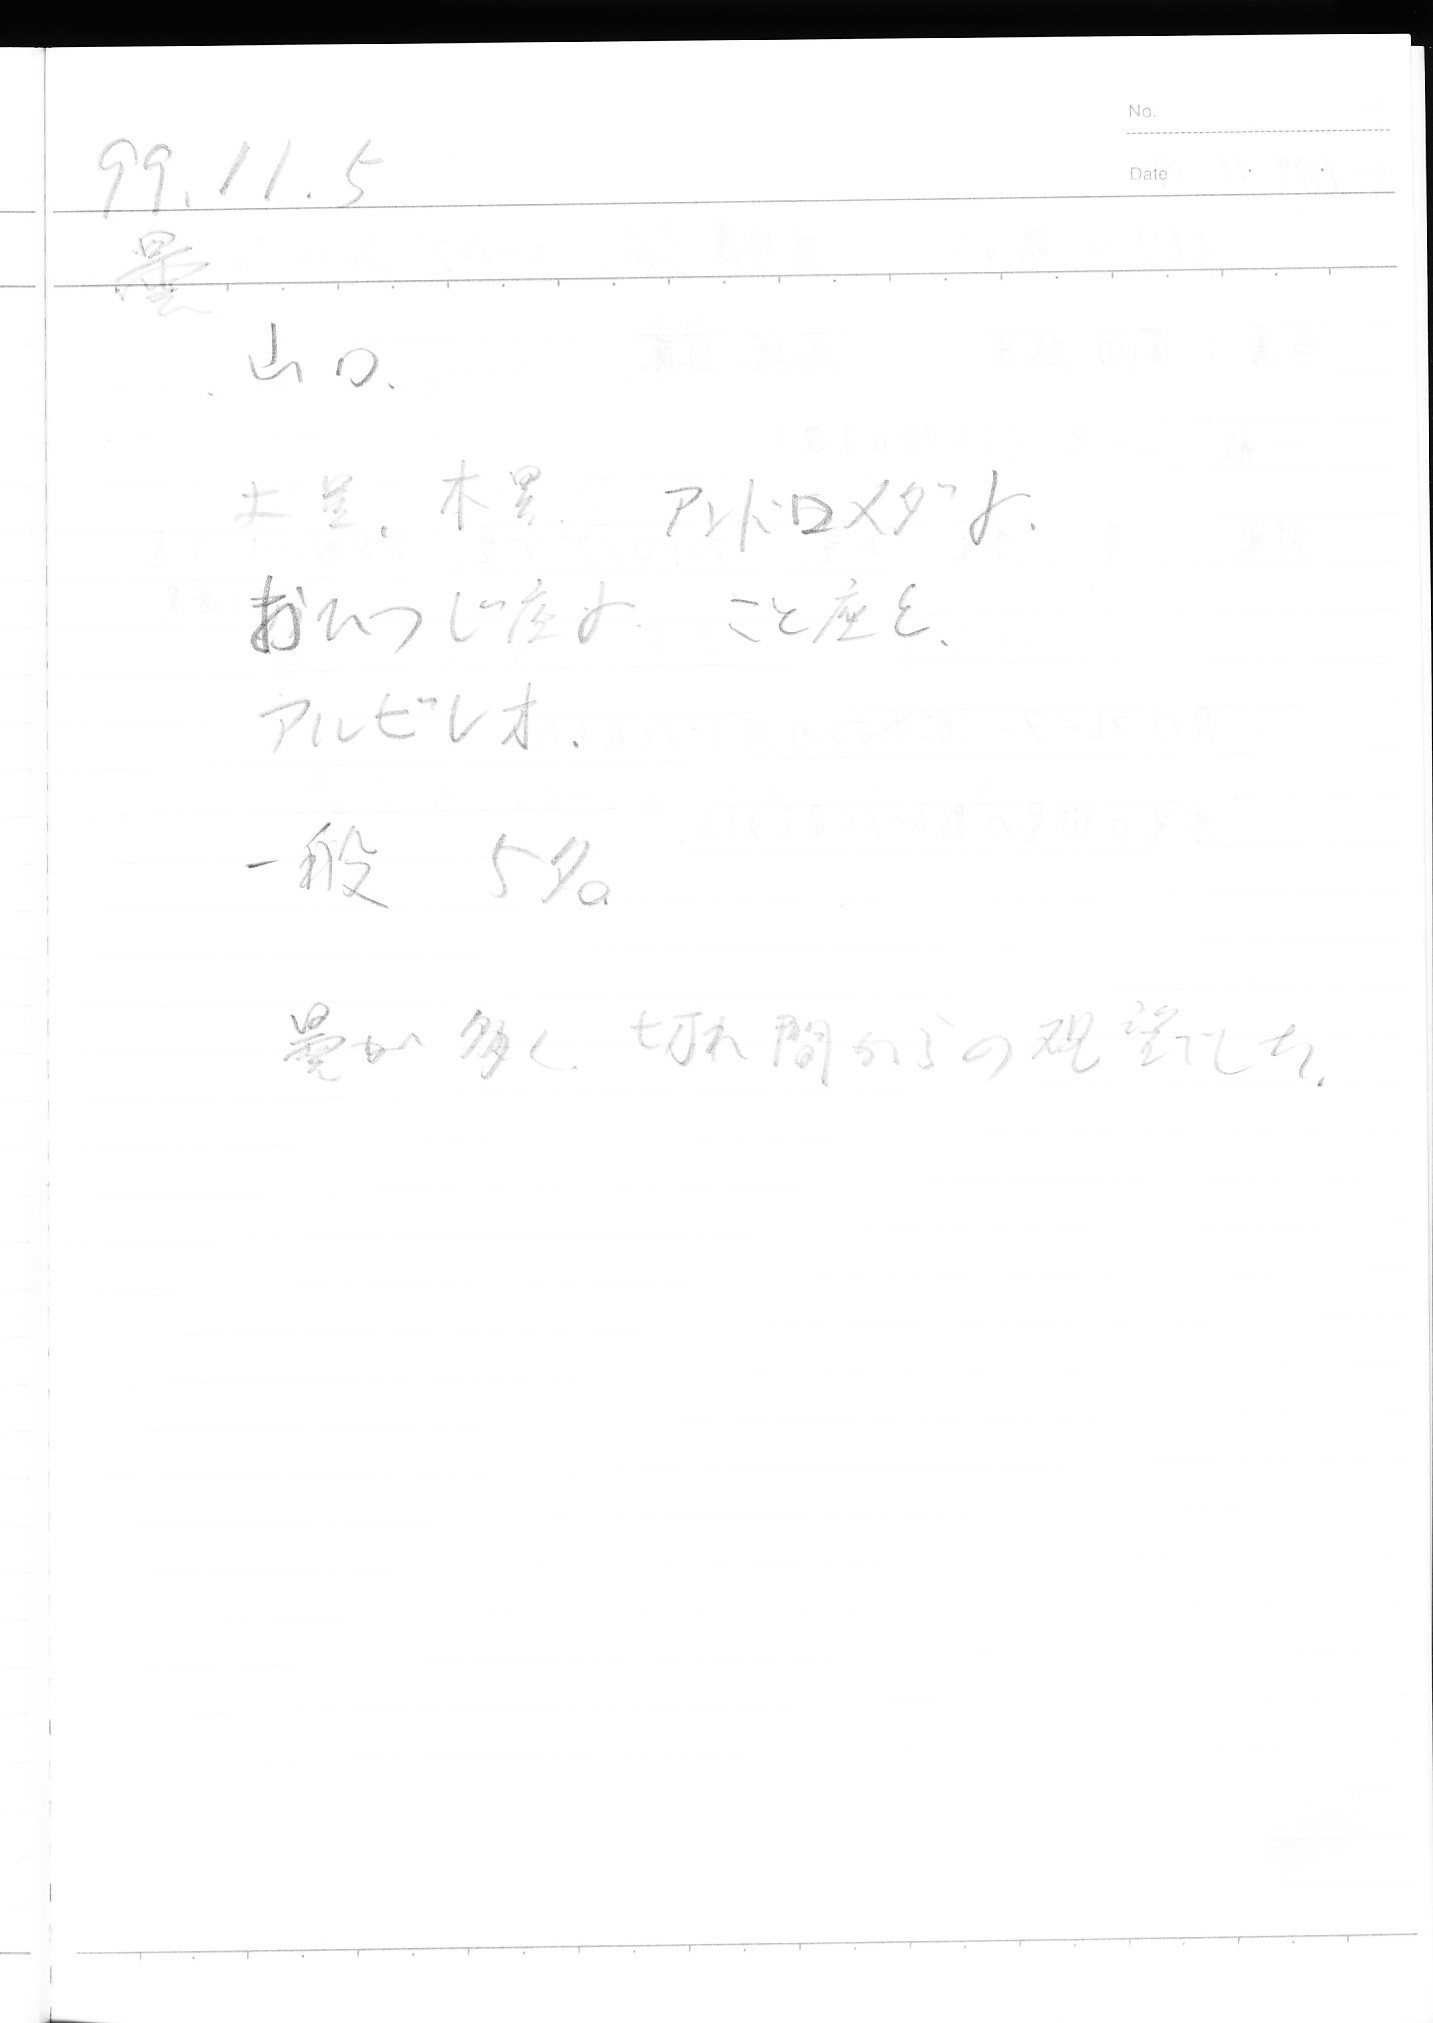 No.
Date
99.11.5
曇
山口.
土星. 木星. アンドロメダγ.
おひつじ座γ. こと座ε.
アルビレオ.
一般 5名
曇が多く. 切れ間からの観望でした.